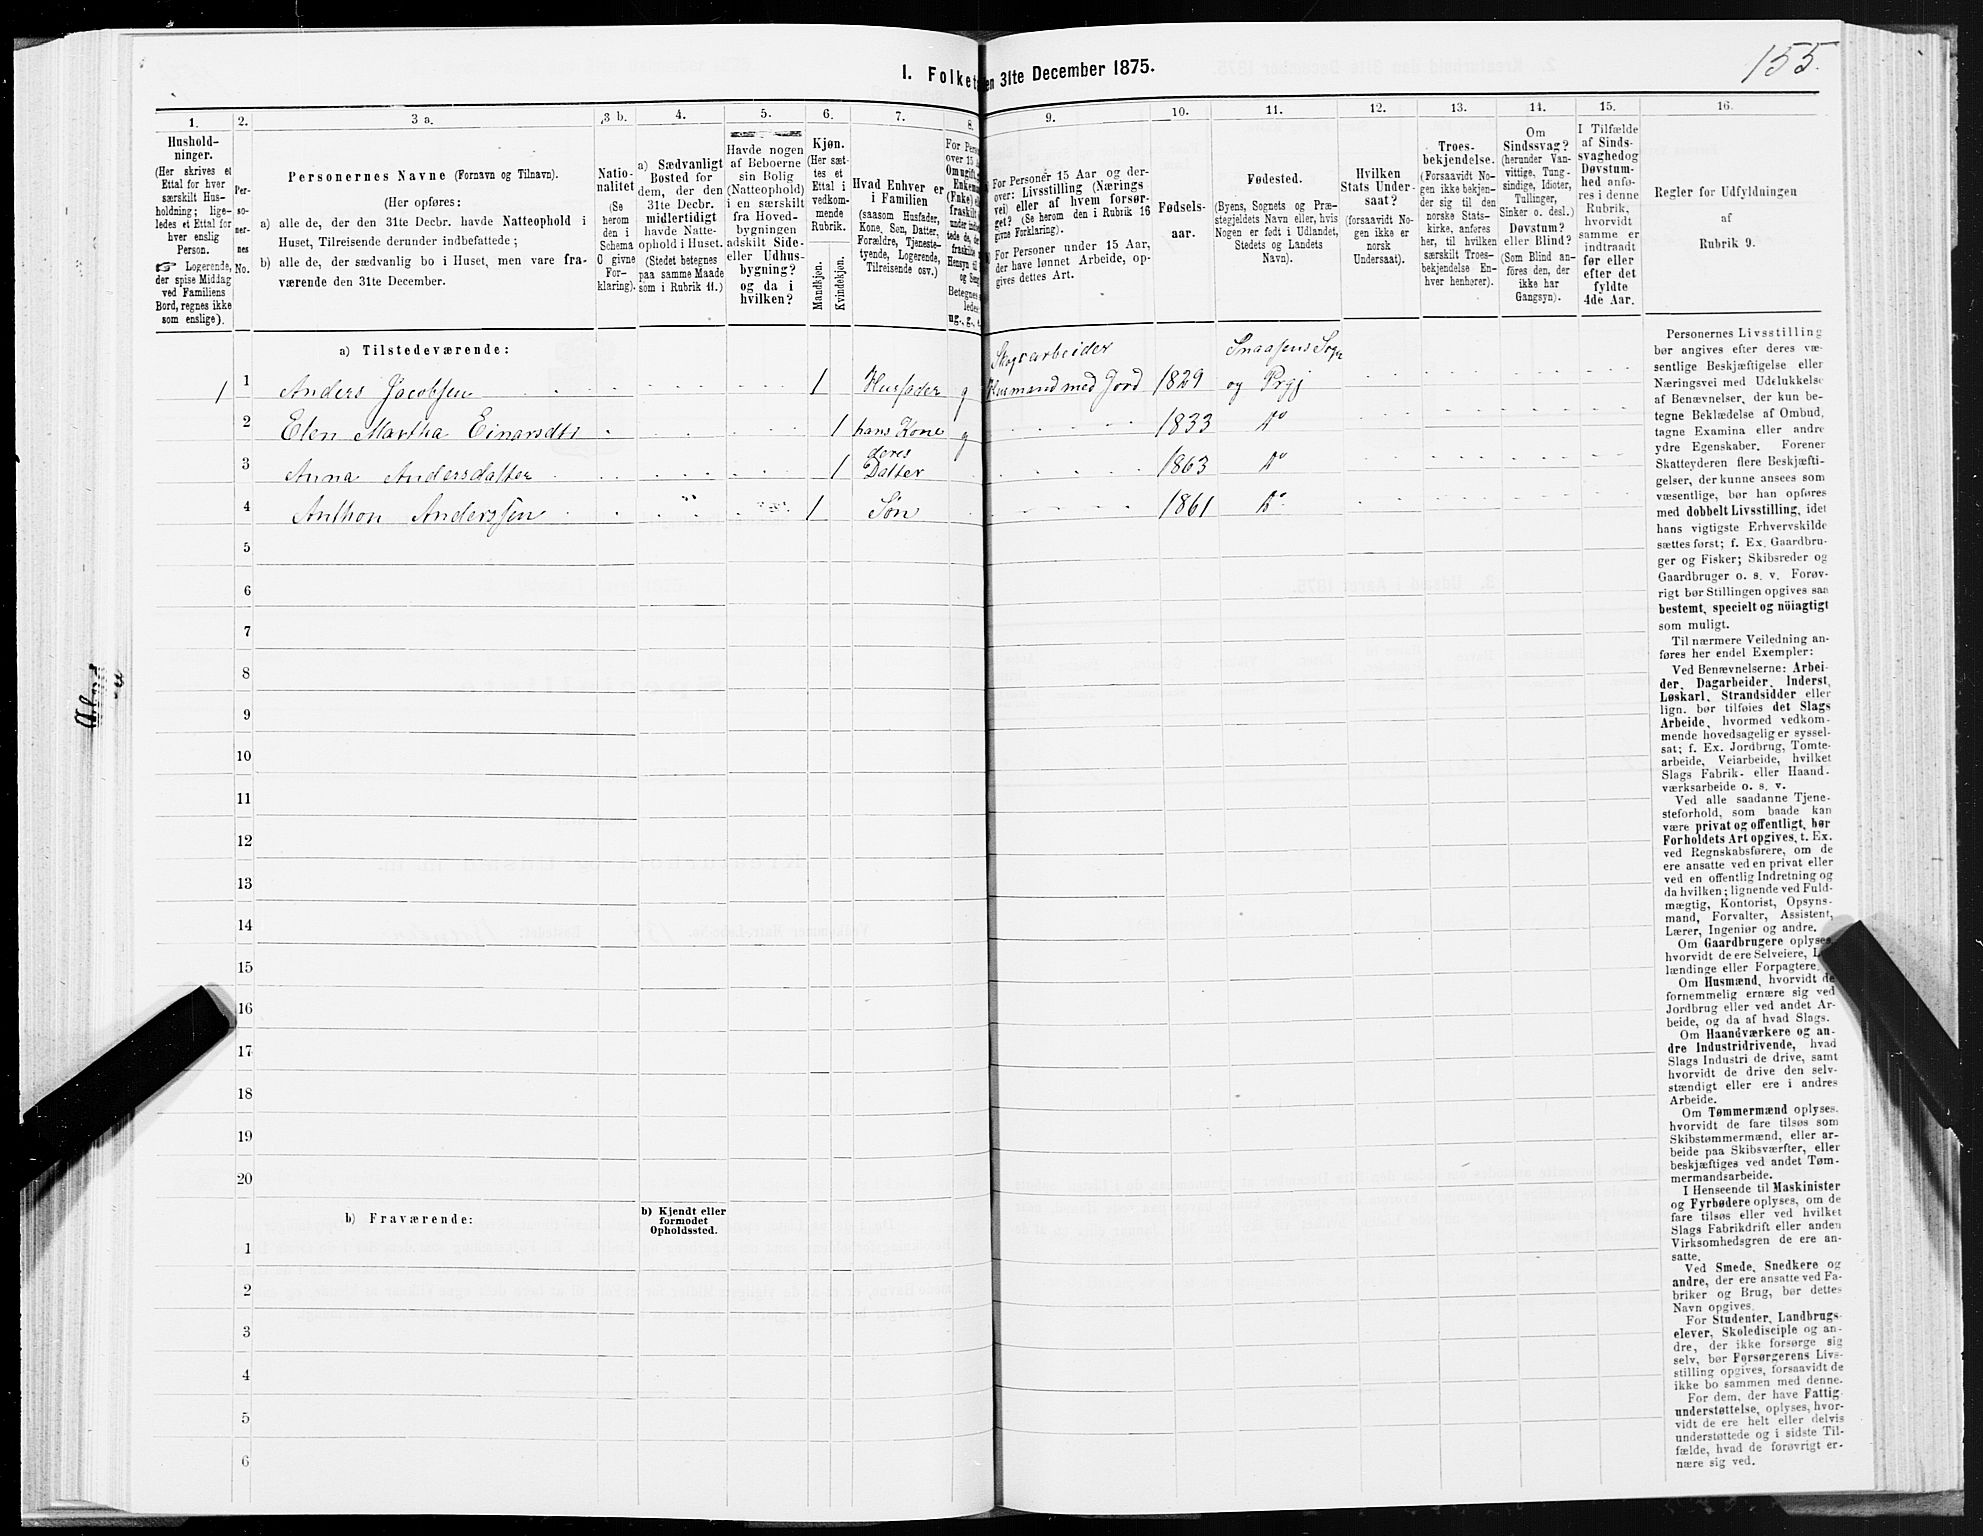 155.
I. Folket
en 31te December 1875.
1.
2.
3 a.
3 b.
4.
5.
6.
7.
8.
9.
10.
11.
12.
13.
14.
15.
16.
Hushold-
ninger.
(Her skrives et
Ettal for hver
særskilt Hus-
holdning; lige-
ledes et Ettal for
hver enslig
Person.
☞ Logerende,
der spise Middag
ved Familiens
Bord, regnes ikke
som enslige).
Per-
so-
ner-
nes
No.
Personernes Navne (Fornavn og Tilnavn).
(Her opføres:
a) alle de, der den 31te Decbr. havde Natteophold i
Huset, Tilreisende derunder indbefattede;
b) alle de, der sædvanlig bo i Huset, men vare fra-
værende den 31te December.
Natio-
nalitet
(Se
herom
den i
Schema
O givne
For-
klaring).
a) Sædvanligt
Bosted for
dem, der den
31te Decbr.
midlertidigt
havde Natte-
ophold i Huset.
(Stedet betegnes
paa samme Maade
som i Rubrik 11.)
Havde nogen
af Beboerne
sin Bolig
(Natteophold)
i en særskilt
fra Hoved-
bygningen
adskilt Side-
eller Udhus-
bygning?
og da i
hvilken?
Kjøn.
(Her sæt-
tes et
Ettal i
vedkom-
mende
Rubrik.
Mandkjøn.
Kvindekjøn.
Hvad Enhver er
i Familien
(saasom Husfader,
Kone, Søn, Datter,
Forældre, Tjeneste-
tyende, Logerende,
Tilreisende osv.)
For Pers
over 15 A
Om ugift, g
Enkema
(Enke) el
fraskilt
under indbe
tede de, de
fraskilte
Hensyn til
og Sen
Betegnes
ledes:
ug., g., e
For Personer 15 Aar og der-
over: Livsstilling (Nærings
vei) eller af hvem forsør-
get? (Se herom den i Rubrik 16
givne Forklaring).
For Personer under 15 Aar,
der have lønnet Arbeide, op-
gives dettes Art.
Fødsels-
aar.
Fødested.
(Byens, Sognets og Præ-
stegjeldets Navn eller, hvis
Nogen er født i Udlandet,
Stedets og Landets
Navn).
Hvilken
Stats Under-
saat?
(forsaavidt No-
gen ikke er
norsk
Undersaat).
Troes-
bekjendelse.
(Forsaavidt No-
gen ikke bekjen-
der sig til den
norske Stats-
kirke, anføres
her, til hvilken
særskilt Troes-
bekjendelse En-
hver henhører).
Om
Sindssvag?
(herunder Van-
vittige, Tung-
sindige, Idioter,
Tullinger,
Sinker o. desl.)
Døvstum?
eller Blind?
(Som Blind an-
føres den, der
ikke har
Gangsyn).
I Tilfælde
af Sinds-
svaghedog
Døvstum-
hed anfø-
res i denne
Rubrik,
hvorvidt
samme er
indtraadt
før eller
efter det
fyldte
4de Aar.
Regler for Udfyldningen
af
Rubrik 9.
a) Tilstedeværende:
Skogsarbeider
Snaasens Sogn
1 1 Anders Jacobsen 1 Husfader g Husmand med Jord 1829 og Prgj
2 Elen Martha Einarsdtr 1 hans Kone g 1833 do
deres
3 Anna Andersdatter 1 Datter 1863 do
4 Anthon Anderssen 1 Søn 1861 do
5
6
7
8
9
10
11
12
13
14
15
16
17
18
19
20
b) Fraværende:
b) Kjendt eller
formodet
Opholdssted.
1
2
3
4
5
6
Personernes Livsstilling
bør angives efter deres væ-
sentlige Beskjæftigelse eller
Næringsvei med Udelukkelse
af Benævnelser, der kun be-
tegne Beklædelse af Ombud,
tagne Examina eller andre
ydre Egenskaber. Forener
Skatteyderen flere Beskjæfti-
gelser, der kunne ansees som
væsentlige, bør han opføres
med dobbelt Livsstilling, idet
hans vigtigste Erhvervskilde
sættes først; f. Ex. Gaardbru-
ger og Fisker; Skibsreder og
Gaardbruger o. s. v. Forøv-
rigt bør Stillingen opgives saa
bestemt, specielt og nöiagtigt
som muligt.
Til nærmere Veiledning an-
føres her endel Exempler:
Ved Benævnelserne: Arbei-
der, Dagarbeider, Inderst,
Løskarl, Strandsidder eller
lign. bør tilføies det Slags
Arbeide, hvormed vedkom-
mende hovedsagelig er syssel-
sat; f. Ex. Jordbrug, Tomte-
arbeide, Veiarbeide, hvilket
Slags Fabrik- eller Haand-
værksarbeide o. s. v.
Ved alle saadanne Tjene-
steforhold, som baade kan
være privat og offentligt, bør
Forholdets Art opgives, t. Ex.
ved Regnskabsførere, om de
ere ansatte ved en privat eller
ved en offentlig Indretning og
da hvilken; lignende ved Fuld-
mægtig, Kontorist, Opsyns-
mand, Forvalter, Assistent,
Lærer, Ingeniør og andre.
Om Gaardbrugere oplyses,
hvorvidt de ere Selveiere, L
lændinge eller Forpagtere.
Om Husmænd, hvorvidt de
fornemmelig ernære sig ved
Jordbrug eller ved andet Ar-
beide, og da af hvad Slags.
Om Haandværkere og an-
dre Industridrivende, hvad
Slags Industri de drive, samt
hvorvidt de drive den selv-
stændigt eller ere i andres
Arbeide.
Om Tømmermænd oplyses,
hvorvidt de fare tilsøs som
Skibstømmermænd, eller ar-
beide paa Skibsværfter, eller
beskjæftiges ved andet Tøm-
mermandsarbeide.
I Henseende til Maskinister
og Fyrbødere oplyses, om de
fare tilsøs eller ved hvilket
Slags Fabrikdrift eller anden
Virksomhedsgren de ere an-
satte.
Ved Smede, Snedkere og
andre, der ere ansatte ved Fa-
briker og Brug, bør dettes
Navn opgives.
For Studenter, Landbrugs-
elever, Skoledisciple og an-
dre, der ikke forsørge sig
selv, bør Forsørgerens Livs-
stilling opgives, forsaavidt de
ikke bo sammen med denne.
For dem, der have Fattig-
understøttelse, oplyses, hvor-
vidt de ere helt eller delvis
understøttede og i sidste Til-
fælde, hvad de forøvrigt er-
nære sig ved.